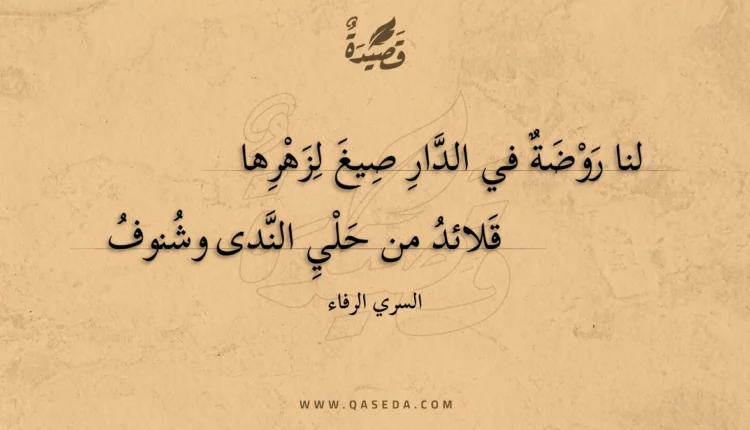 قَصِيدَةٌ
لنا رَوْضَةٌ في الدَّارِ صِيغَ لِزَهْرِها
قَلائدُ من حَلْيِ النَّدى وشُنوفُ
السري الرفاء
WWW.QASEDA.COM